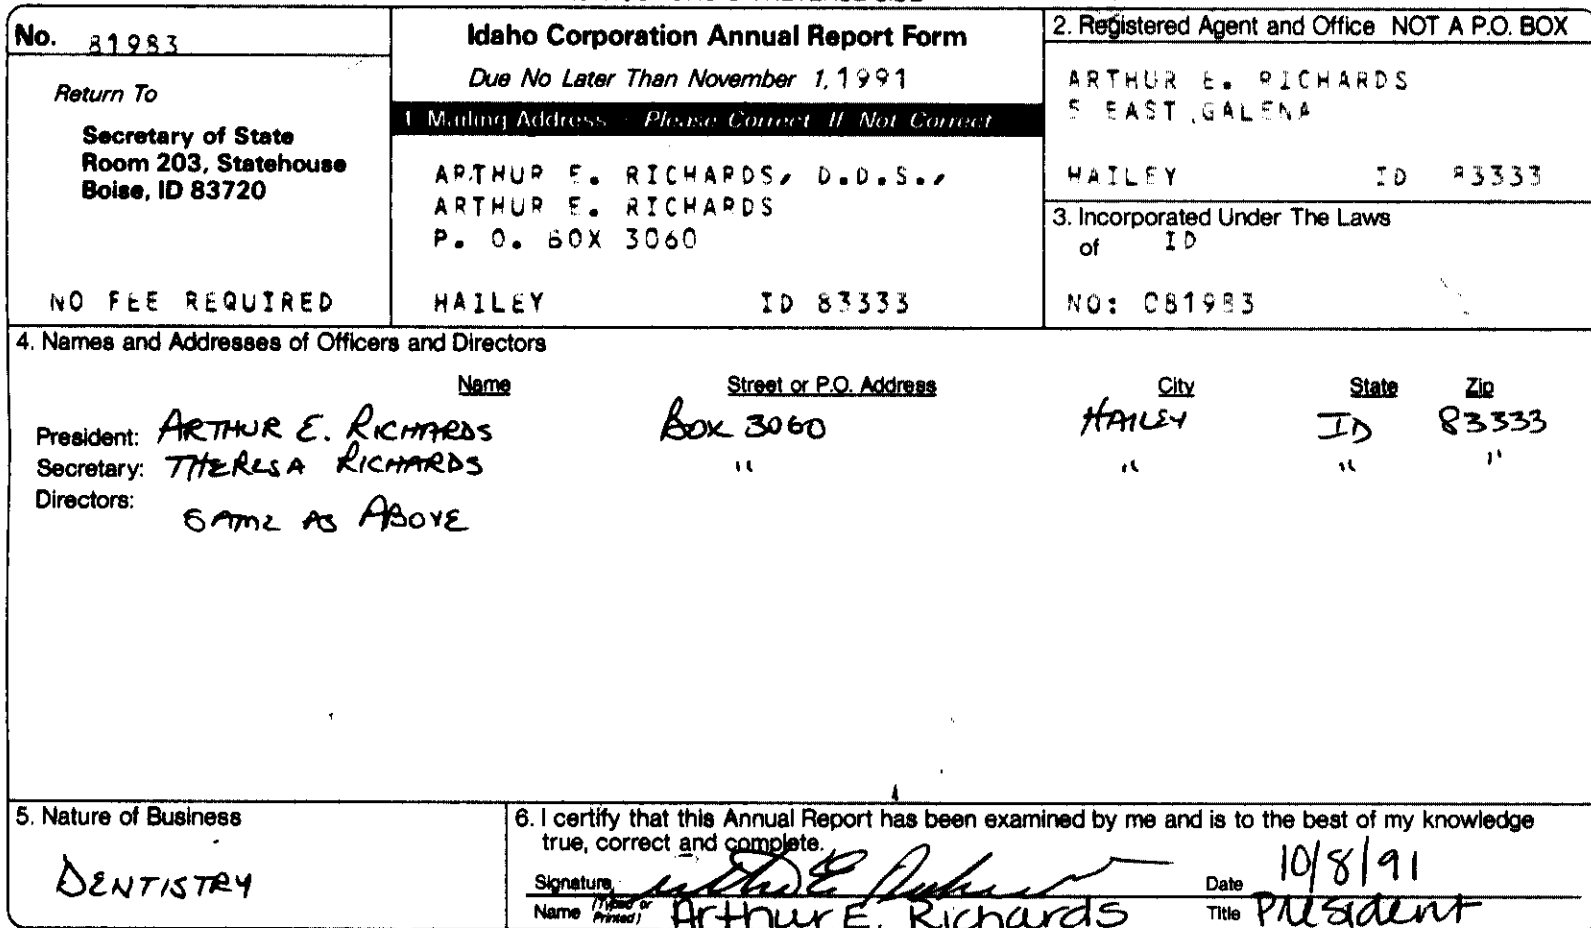 No. 81983
Return To
Secretary of State
Room 203, Statehouse
Boise, ID 83720
NO FEE REQUIRED
Idaho Corporation Annual Report Form
Due No Later Than November 1, 1991
1 Mailing Address - Please Correct If Not Correct
ARTHUR E. RICHARDS, D.D.S.,
ARTHUR E. RICHARDS
P. O. BOX 3060
HAILEY ID 83333
2. Registered Agent and Office NOT A P.O. BOX
ARTHUR E. RICHARDS
5 EAST GALENA
HAILEY ID 83333
3. Incorporated Under The Laws
of ID
NO: C81983
4. Names and Addresses of Officers and Directors
Name Street or P.O. Address City State Zip
President: ARTHUR E. RICHARDS BOX 3060 HAILEY ID 83333
Secretary: THERESA RICHARDS " " " "
Directors:
SAME AS ABOVE
5. Nature of Business
DENTISTRY
6. I certify that this Annual Report has been examined by me and is to the best of my knowledge
true, correct and complete.
Signature Arthur E Richards Date 10/8/91
Name (Typed or Printed) Arthur E. Richards Title President